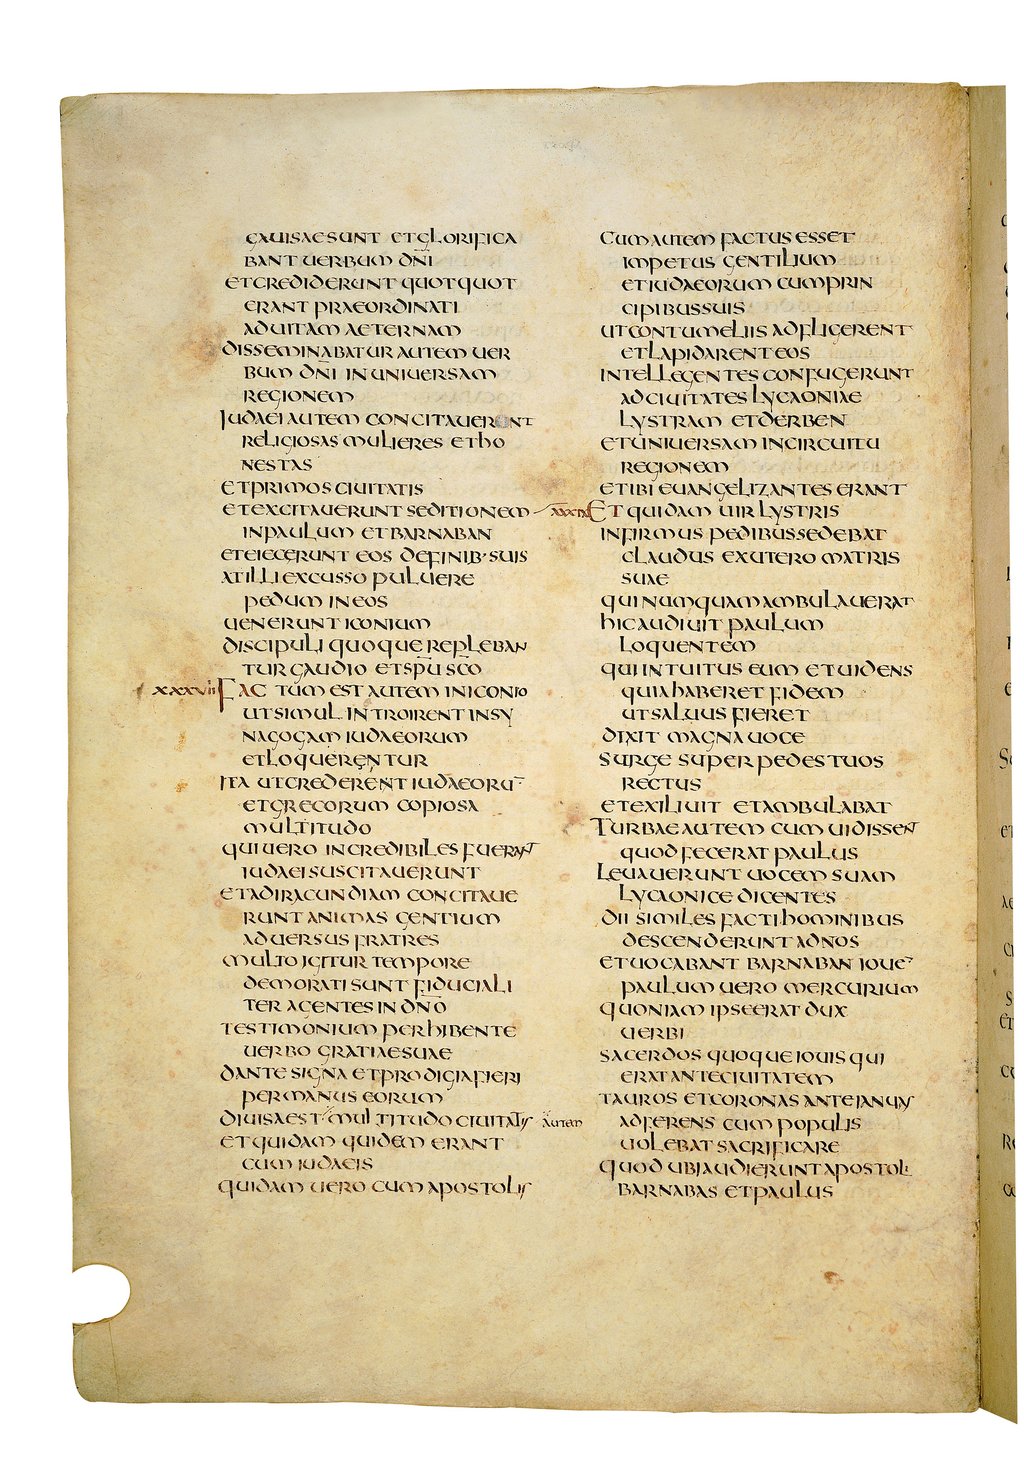 GAUISAE SUNT ET GLORIFICA
BANT UERBUM DN̄I
ET CREDIDERUNT QUOTQUOT
ERANT PRAEORDINATI
AD UITAM AETERNAM
DISSEMINABATUR AUTEM UER
BUM DN̄I IN UNIUERSAM
REGIONEM
IUDAEI AUTEM CONCITAUERUNT
RELIGIOSAS MULIERES ET HO
NESTAS
ET PRIMOS CIUITATIS
ET EXCITAUERUNT SEDITIONEM
IN PAULUM ET BARNABAN
ET EIECERUNT EOS DE FINIB· SUIS
AT ILLI EXCUSSO PULUERE
PEDUM IN EOS
UENERUNT ICONIUM
DISCIPULI QUOQUE REPLEBAN
TUR GAUDIO ET SP̄U SC̄O
XXXVII FACTUM EST AUTEM IN ICONIO
UT SIMUL INTROIRENT IN SY
NAGOGAM IUDAEORUM
ET LOQUERENTUR
ITA UT CREDERENT IUDAEORU¯
ET GRECORUM COPIOSA
MULTITUDO
QUI UERO INCREDIBILES FUERANT
IUDAEI SUSCITAUERUNT
ET AD IRACUNDIAM CONCITAUE
RUNT ANIMAS GENTIUM
ADUERSUS FRATRES
MULTO IGITUR TEMPORE
DEMORATI SUNT FIDUCIALI
TER AGENTES IN DN̄O
TESTIMONIUM PERHIBENTE
UERBO GRATIAE SUAE
DANTE SIGNA ET PRODIGIA FIERI
PER MANUS EORUM
DIUISA EST MULTITUDO CIUITATIS AUTEM
ET QUIDAM QUIDEM ERANT
CUM IUDAEIS
QUIDAM UERO CUM APOSTOLIS
CUM AUTEM FACTUS ESSET
IMPETUS GENTILIUM
ET IUDAEORUM CUM PRIN
CIPIBUS SUIS
UT CONTUMELIIS ADFLIGERENT
ET LAPIDARENT EOS
INTELLEGENTES CONFUGERUNT
AD CIUITATES LYCAONIAE
LYSTRAM ET DERBEN
ET UNIUERSAM IN CIRCUITU
REGIONEM
ET IBI EUANGELIZANTES ERANT
ET QUIDAM UIR LYSTRIS
INFIRMUS PEDIBUS SEDEBAT
CLAUDUS EX UTERO MATRIS
SUAE
QUI NUMQUAM AMBULAUERAT
HIC AUDIUIT PAULUM
LOQUENTEM
QUI INTUITUS EUM ET UIDENS
QUIA HABERET FIDEM
UT SALUUS FIERET
DIXIT MAGNA UOCE
SURGE SUPER PEDES TUOS
RECTUS
ET EXILIUIT ET AMBULABAT
TURBAE AUTEM CUM UIDISSENT
QUOD FECERAT PAULUS
LEUAUERUNT UOCEM SUAM
LYCAONICE DICENTES
DII SIMILES FACTI HOMINIBUS
DESCENDERUNT AD NOS
ET UOCABANT BARNABAN IOUE¯
PAULUM UERO MERCURIUM
QUONIAM IPSE ERAT DUX
UERBI
SACERDOS QUOQUE IOUIS QUI
ERAT ANTE CIUITATEM
TAUROS ET CORONAS ANTE IANUAS
ADFERENS CUM POPULIS
UOLEBAT SACRIFICARE
QUOD UBI AUDIERUNT APOSTOLI
BARNABAS ET PAULUS